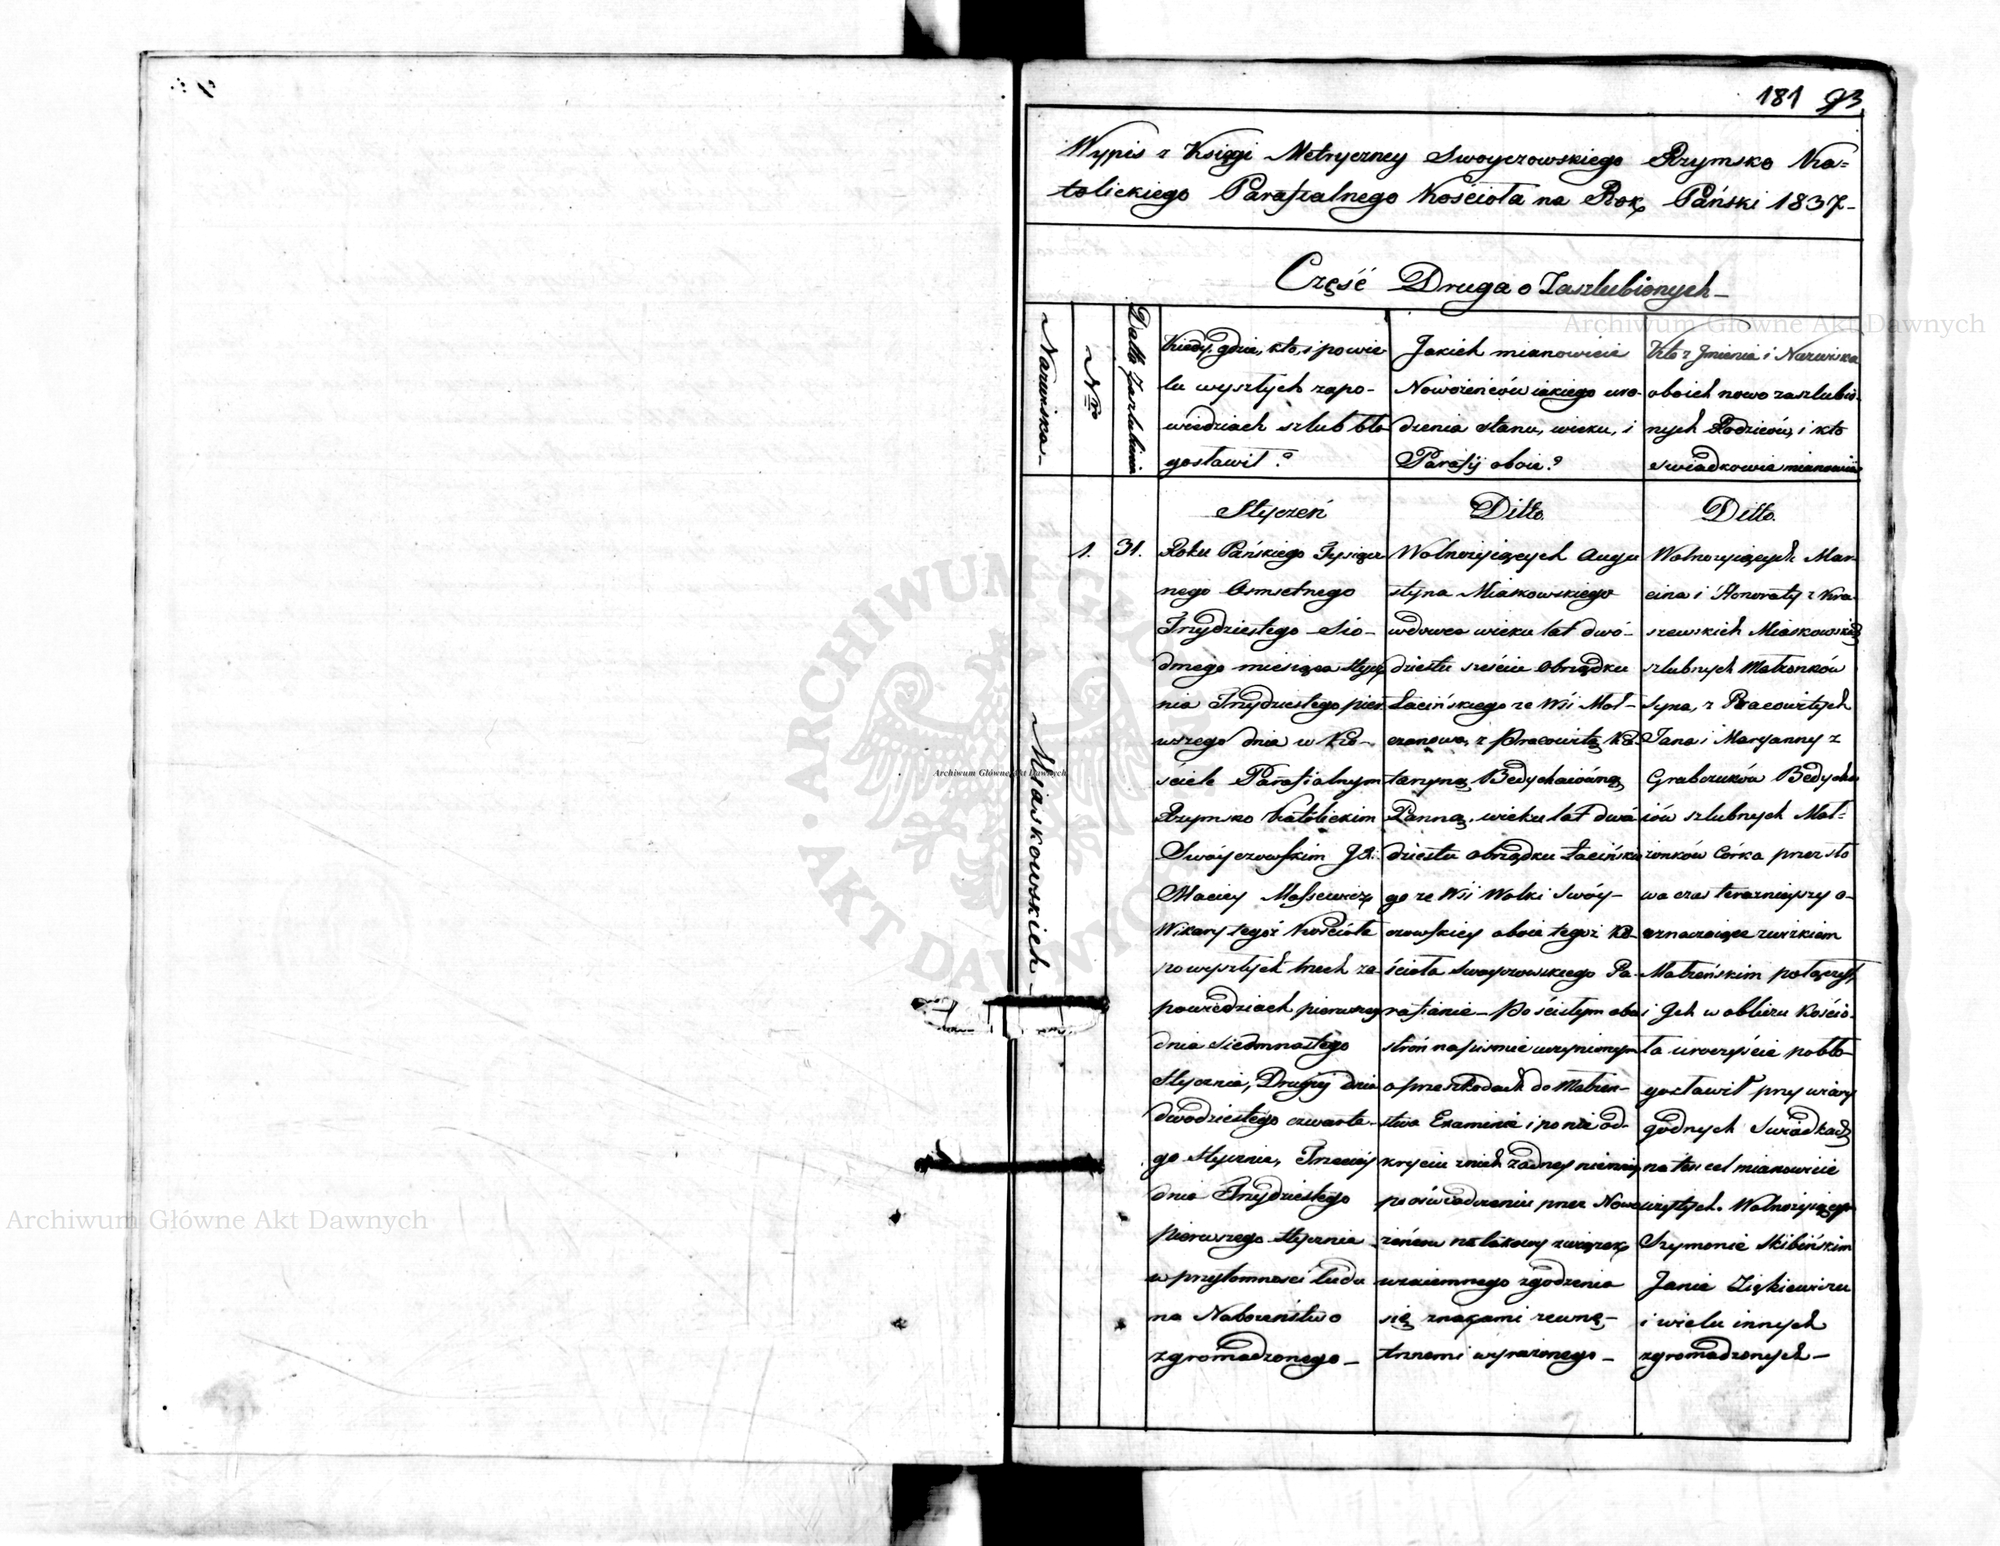 181 93
Wypis z Księgi Metryczney Swoyczowskiego Rzymsko Ka=
tolickiego Parafialnego Kościoła na Rok Pański 1837-
Część Druga o Zaszlubionych-
Nazwiska-
Nro
Datta Zaszlubin
Kiedy, gdzie, kto, i po wie-
lu wyszłych zapo-
wiedziach szlub bło
gosławił?
Jakich mianowicie
Nowożeńców iakiego uro-
dzenia stanu, wieku, i
Parafij oboie?
Kto z Jmienia i Nazwiska
oboich nowo zaszlubio-
nych Rodziców, i kto
swiadkowie mianowicie
Miaskowskich-
1.
31.
Styczeń
Roku Pańskiego Tysiącz
nego Osmsetnego
Trzydziestego Sió-
dmego miesiąca Stycz
nia Trzydziestego pier
wszego dnia w Ko-
sciele Parafialnym
Rzymsko Katolickim
Swóyczowskim JX:
Maciey Massewicz
Wikary tegoż Kościoła
po wyszłych trzech za
powiedziach pierwszey
dnia siedmnastego
Stycznia, Drugiey dnia
dwódziestego czwarte-
go Stycznia, Trzeciey
dnia Trzydziestego
pierwszego Stycznia
w przytomnosci ludu
na Nabożeństwo
zgromadzonego-
Ditto.
Wolnożyiących Augu
styna Miaskowskiego
wdowca wieku lat dwó-
dziestu sześciu Obrządku
Łacińskiego ze Wsi Moł-
czanowa, z Pracowitą Ka
tarzyną Bedychaiówną
Panną, wieku lat dwó
dziestu obrządku Łacińskie
go ze Wsi Wolki Swóy-
czowskiey oboie tegoż Ko-
ścioła Swoyczowskiego Pa-
rafianie- Po ścisłym obu
stron na piśmie uczynionym
o przeszkodach do Małżeń-
stwa Examinie i po nie od-
kryciu z nich żadney niemniey
po oświadczeniu przez Nowo
żeńców na takowy związek
wzaiemnego zgodzenia
się znakami zewnę-
trznemi wyrażonego-
Ditto.
Wolnożyiących Mar-
cina i Honoraty z Kra
szewskich Miaskowskich
szlubnych Małżonków
Syna, z Pracowitych
Jana i Maryanny z
Grabczuków Bedycha
iów szlubnych Mał-
żonków Córka przez sło
wa czas terazniejszy o-
znaczaiące związkiem
Małżeńskim połączył,
i Jch w obliczu Kościo-
ła uroczyście pobło-
gosławił przy wiary
godnych Swiadkach
na ten cel mianowicie
użytych. Wolnożyiących
Szymonie Skibińskim
Janie Ziękiewiczu
i wielu innych
zgromadzonych-
Archiwum Główne Akt Dawnych
Archiwum Główne Akt Dawnych
Archiwum Główne Akt Dawnych
ARCHIWUM GŁÓWNE • AKT DAWNYCH •